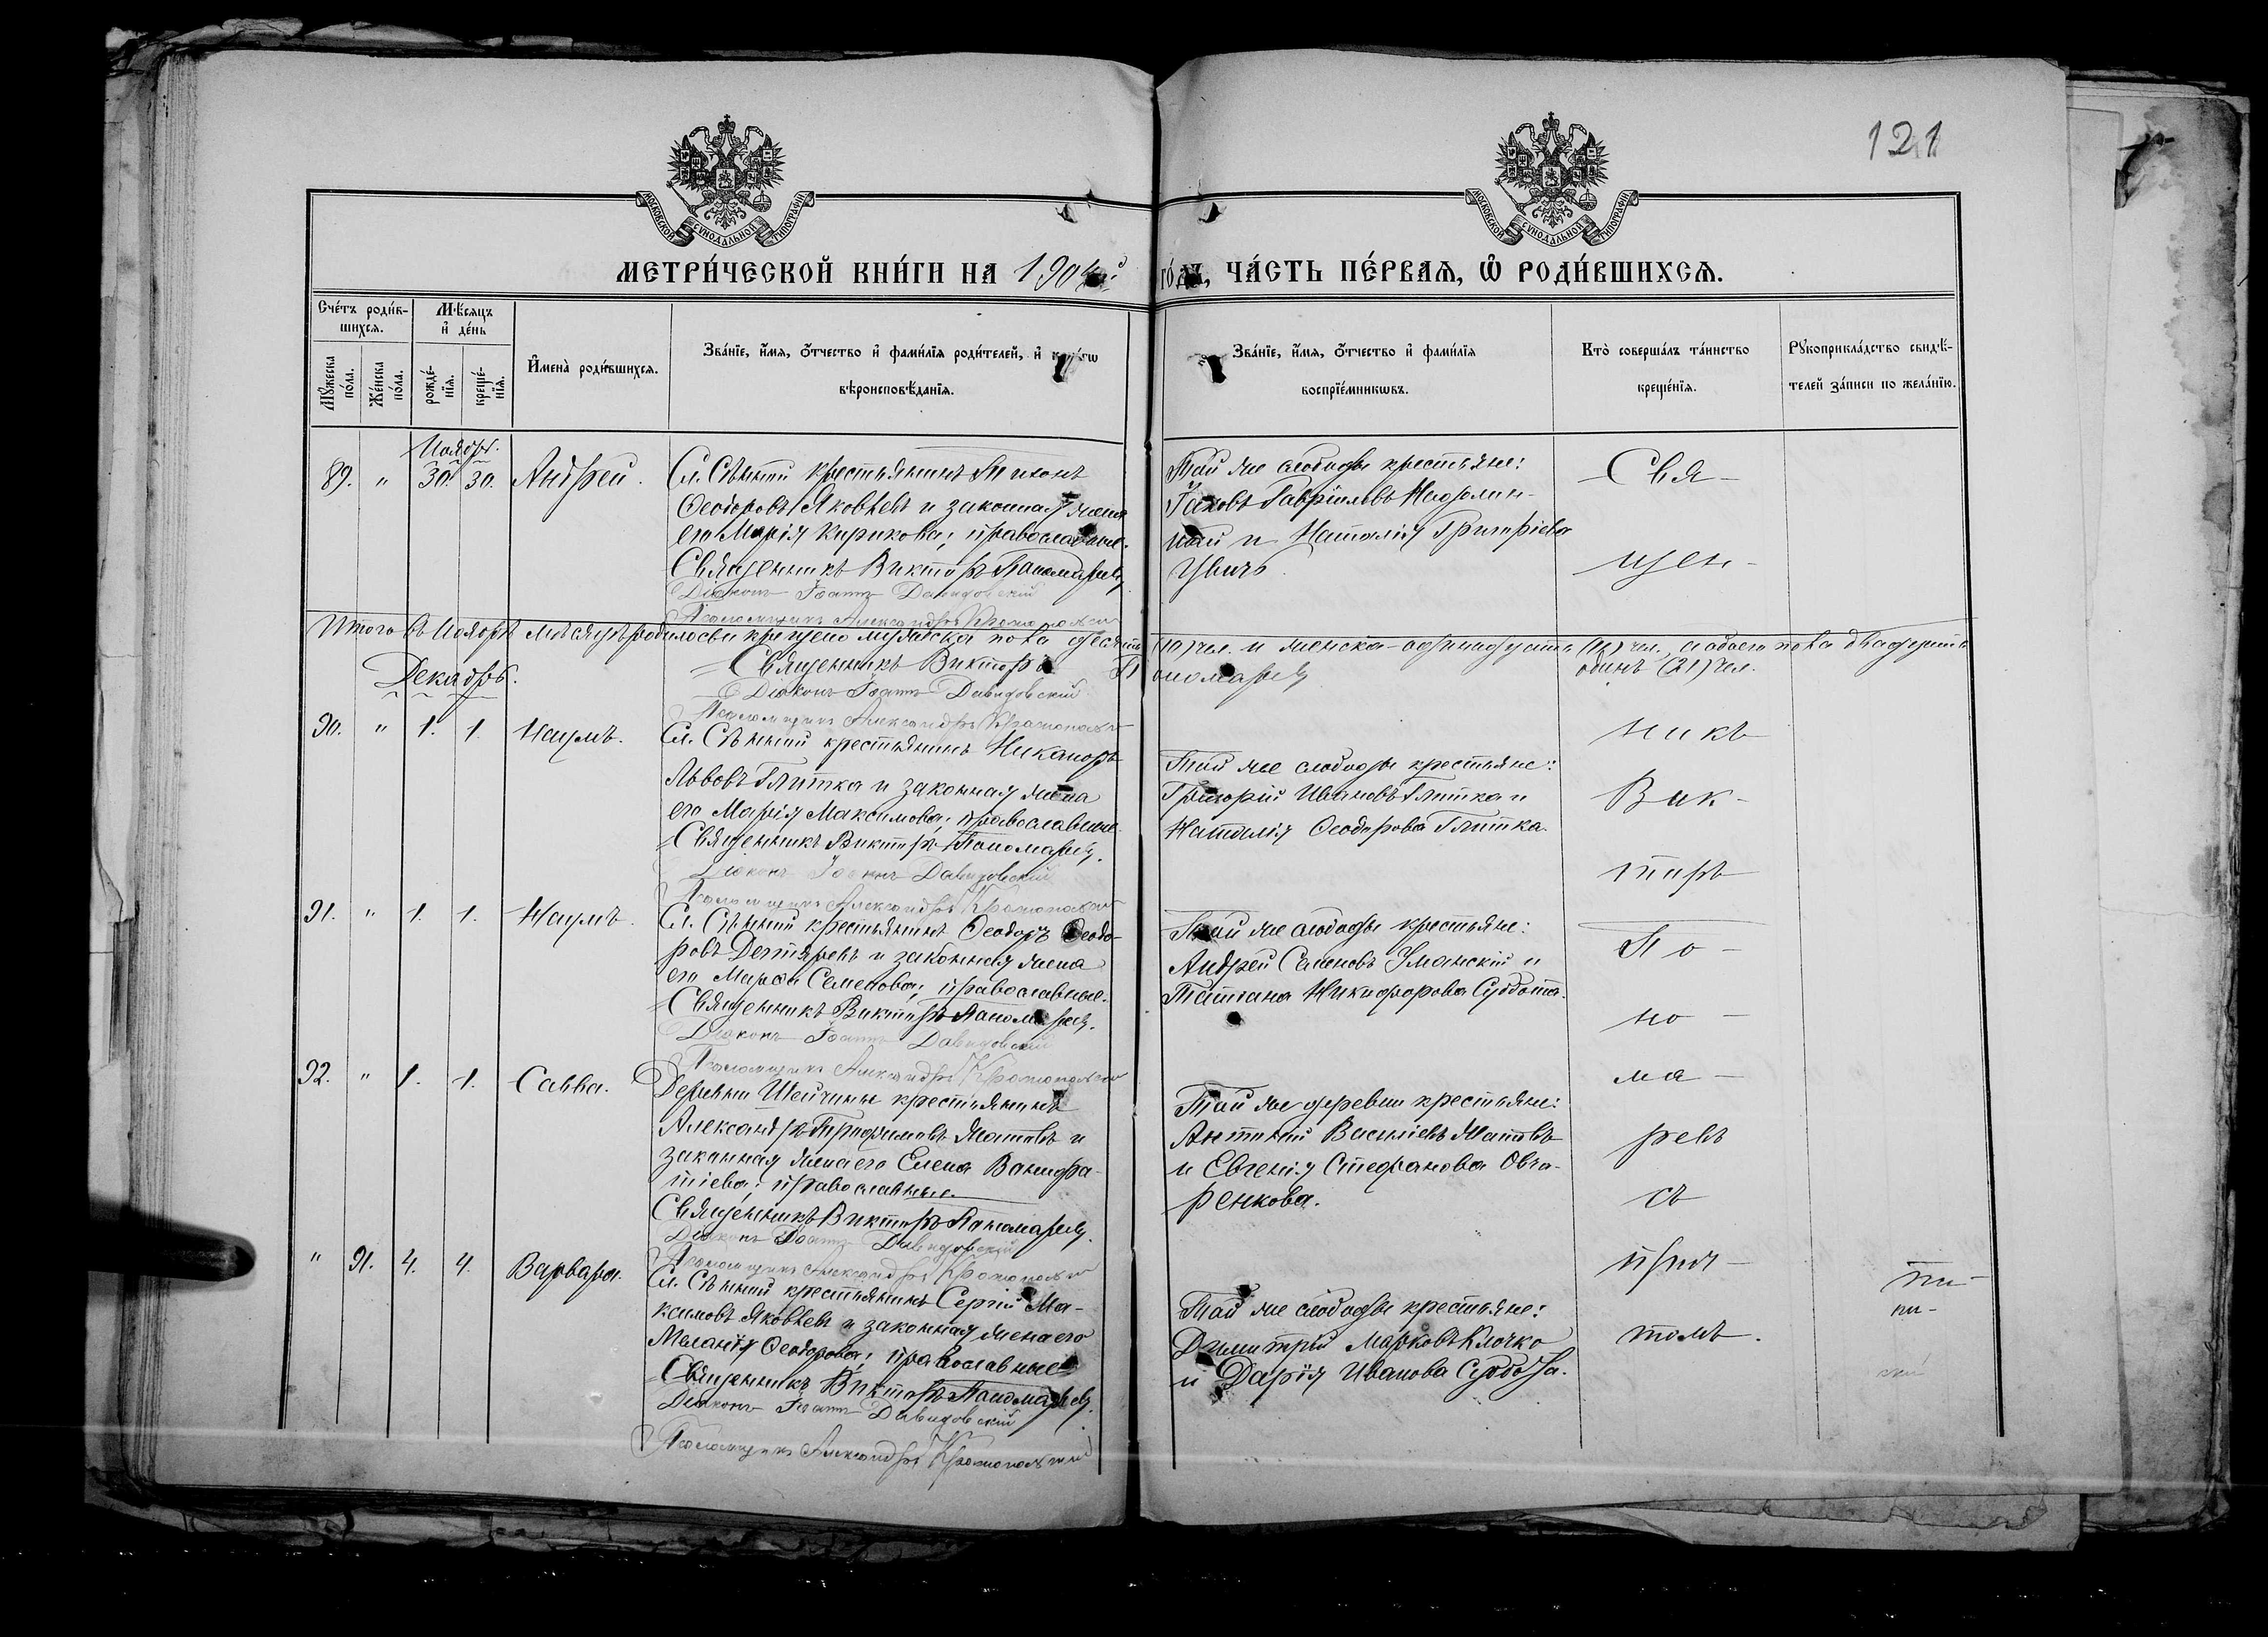 121
МОСКОВСКОЙ СѴНОДАЛЬНОЙ ТИПОГРАФІИ
МОСКОВСКОЙ СѴНОДАЛЬНОЙ ТИПОГРАФІИ
МЕТРИ́ЧЕСКОЙ КНИ́ГИ НА 1904й го́дъ, ЧА́СТЬ ПЕ́РВАЯ, Ѡ҆ РОДИ́ВШИХСЯ.
Сче́тъ роди́вшихся.
Мꙋжеска по́ла.
Же́нска по́ла.
Мѣ́сяцъ и҆ де́нь
рожде́нїя.
креще́нїя.
И҆мена̀ роди́вшихся.
Зва́нїе, и҆́мя, ѻ҆́тчество и҆ фами́лїя роди́телей, и҆
вѣроисповѣ́данїя.
Зва́нїе, и҆́мя, ѻ҆́тчество и҆ фами́лїя
воспрїе́мникѡвъ.
Кто̀ соверша́лъ та́инство
креще́нїя.
Рꙋкоприкла́дство свидѣ́телей за́писи по жела́нїю.
Ноябрь.
89. " 30. 30. Андрей.
Сл. Сѣнной крестьянинъ Тихонъ
Ѳеодоровъ Яковлевъ и законная жена
его Марія Кирикова; православные.
Священникъ Викторъ Пономаревъ
Діаконъ Іоаннъ Давидовскій
Псаломщикъ Александръ
Той же слободы крестьяне:
Іаковъ Гавріиловъ
и Наталія
Свя-
щен-
Итого въ Ноябрѣ мѣсяцѣ родилось и крещено мужеска пола десять (10) чел. и женска-одинадцать (11) чел., а обоего пола двадцать
одинъ (21) чел.
Священникъ Викторъ Пономаревъ
Діаконъ Іоаннъ Давидовскій
Псаломщикъ Александръ
Декабрь.
90. " 1. 1. Наумъ.
Сл. Сѣнной крестьянинъ Никаноръ
Львовъ Глитка и законная жена
его Марія Максимова; православные.
Священникъ Викторъ Пономаревъ.
Діаконъ Іоаннъ Давидовскій
Псаломщикъ Александръ
Той же слободы крестьяне:
Григорій Ивановъ Глитка и
Наталія Ѳеодорова Глитка.
никъ
Вик-
торъ
91. " 1. 1. Наумъ.
Сл. Сѣнной крестьянинъ Ѳеодоръ Ѳеодо-
ровъ Дегтяревъ и законная жена
его Семенова; православные.
Священникъ Викторъ Пономаревъ.
Діаконъ Іоаннъ Давидовскій
Псаломщикъ Александръ
Той же слободы крестьяне:
Андрей Семеновъ Уманскій и
Татіана Никифорова Суббота.
По-
но-
92. " 1. 1. Савва.
Деревни Шейчины крестьянинъ
Александръ Трофимовъ и
законная жена его Елена
тіева; православные.
Священникъ Викторъ Пономаревъ.
Діаконъ Іоаннъ Давидовскій
Псаломщикъ Александръ
Той же деревни крестьяне:
Васильевъ
и Евгенія Стефанова Овча-
ренкова.
ма-
ревъ
съ
" 91. 4. 4. Варвара.
Сл. Сѣнной крестьянинъ Сергій Ма-
ксимовъ Яковлевъ и законная жена его
Меланія Ѳеодорова; православные
Священникъ Викторъ Пономаревъ.
Діаконъ Іоаннъ Давидовскій
Псаломщикъ Александръ
Той же слободы крестьяне:
Димитрій Марковъ Клочко
и Дарія Иванова
прич-
томъ.